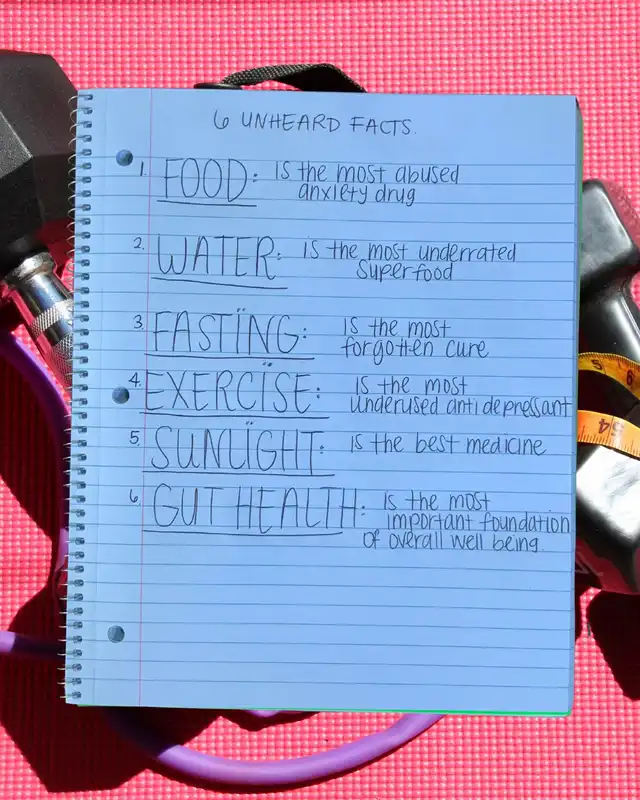 6 UNHEARD FACTS.
1. FOOD: is the most abused
anxiety drug
2. WATER: is the most underrated
superfood
3. FASTING: is the most
forgotten cure
4. EXERCISE: is the most
underused anti depressant
5. SUNLIGHT: is the best medicine
6. GUT HEALTH: is the most
important foundation
of overall well being
54
6